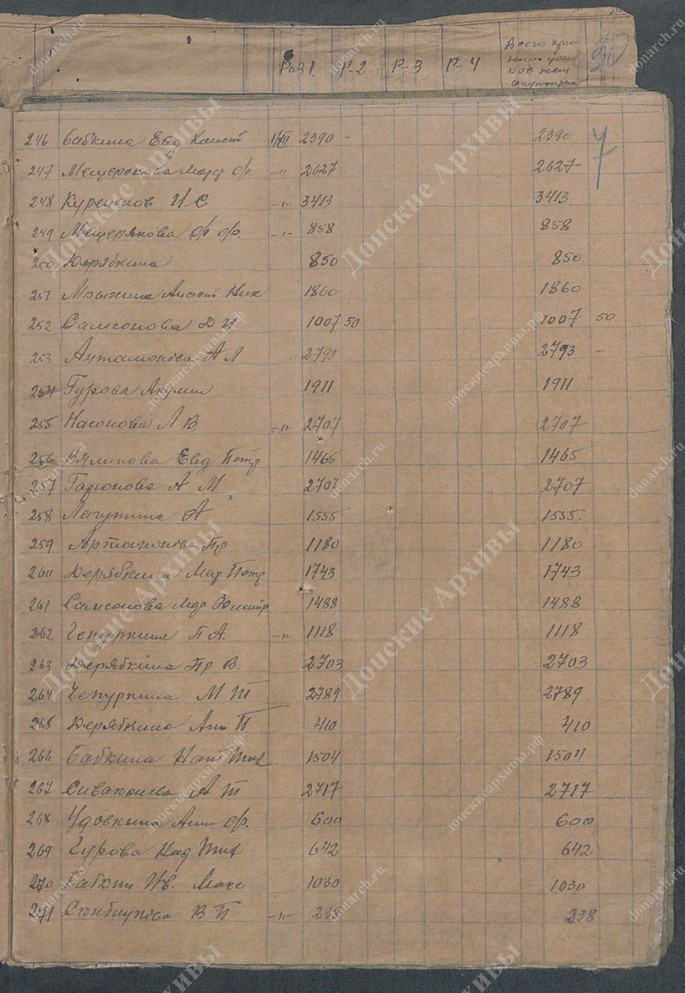 Раз 1 Р-2 Р-3 Р-4 Всего
30
7
246 Бабкина Евд Конст 2390 - 2390
247 Мещерякова Мар Ф -"- 2627 2627
248 И С -"- 3413 3413
249 Мещерякова Ф Ф. -"- 858 858
250 Дерябкина 850 850
251 Мрыхина Анаст Ник 1860 1860
252 Самсонова Д И 1007 50 1007 50
253 Антамонова А Я 2793 2793 -
254 Гурова Акулин 1911 1911
255 Насонова Л В -"- 2707 2707
256 Евд Петр 1465 1465
257 А М 2707 2707
258 Лагункина А 1555 1555.
259 Пр 1180 1180
260 Дерябкина Мар Петр 1743 1743
261 Самсонова Мар Дмитр 1488 1488
262 Чепуркина П А. -"- 1118 1118
263 Дерябкина Пр В. 2703 2703
264 Чепуркина М Т 2789 2789
265 Дерябкина Ан П 410 410
266 Бабкина Нат Тих 1504 1504
267 Сиваконева А Т 2717 2717
268 Удовкина Анн Ф. 600 600
269 Гурова Над Тих 642 642
270 Бабкин Ив. Макс 1030 1030
271 В П -"- 238 238
Донские Архивы
donarch.ru
донскиеархивы.рф